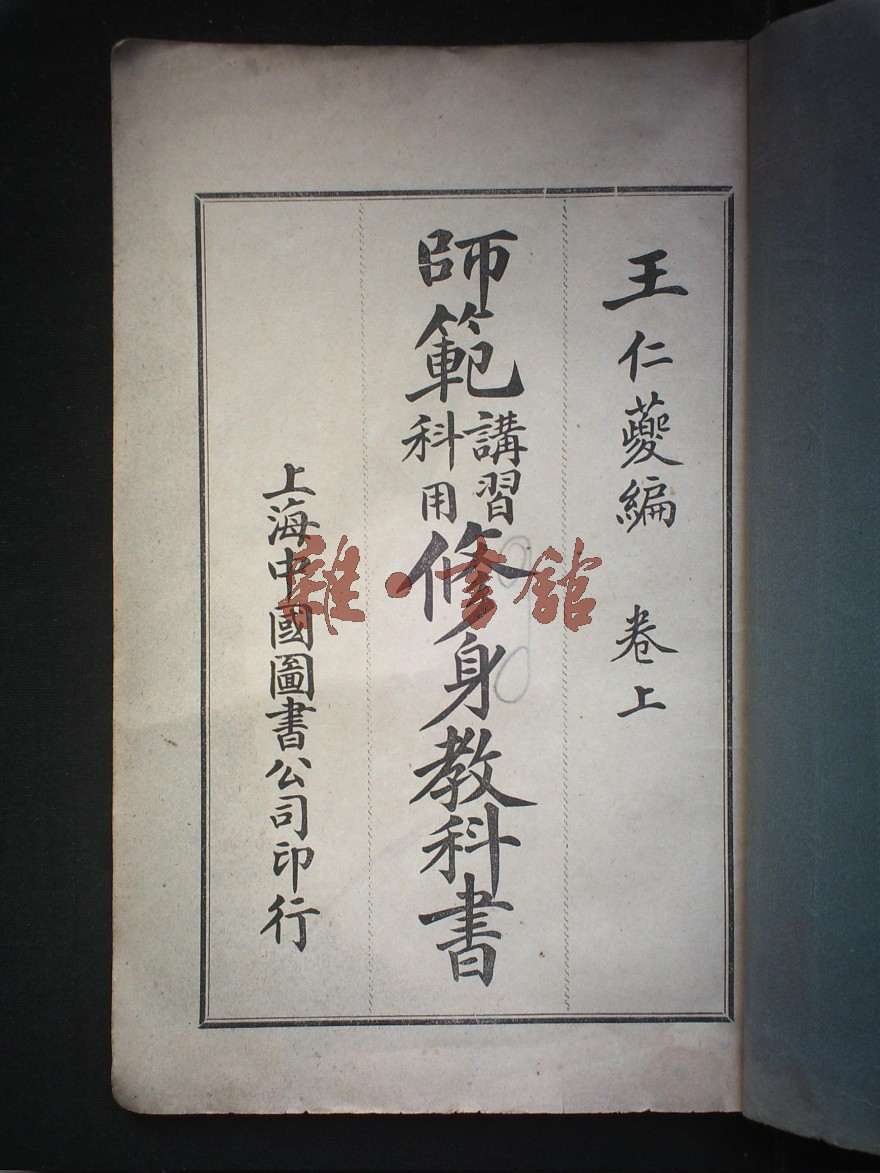 王仁蘷編　卷上
師範講習科用修身教科書
上海中國圖書公司印行
雜·書館